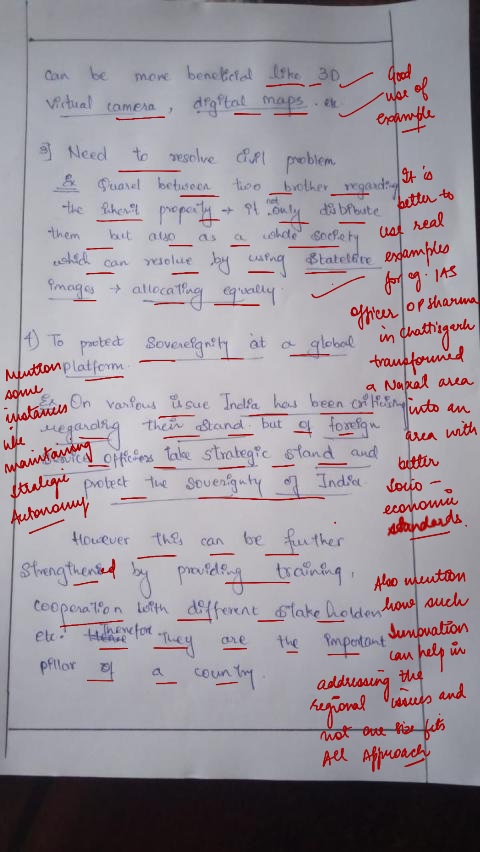 can be more beneficial like 3D
virtual camera, digital maps. etc
Good
use of
example
3] Need to resolve civil problem
Ex Quarel between two brother regarding
the inherit property → it not only distibute
them but also as a whole society
which can resolve by using Statelite
images → allocating equally.
It is
better to
use real
examples
for eg. IAS
officer OP sharma
in Chattisgarh
transformed
a Naxal area
into an
area with
better
socio-
economic
standards.
4) To protect Sovereignity at a global
platform.
Ex On various issue India has been criticising
regarding their stand but of foreign
service officers take strategic stand and
protect the sovereignty of India.
Mention
some
instances
like
maintaining
strategic
Autonomy
However this can be further
strengthened by providing training,
cooperation with different stakeholders
etc. Therefore They are the important
pillar of a country.
Also mention
how such
Innovation
can help in
addressing the
regional issues and
not one size fits
All Approach